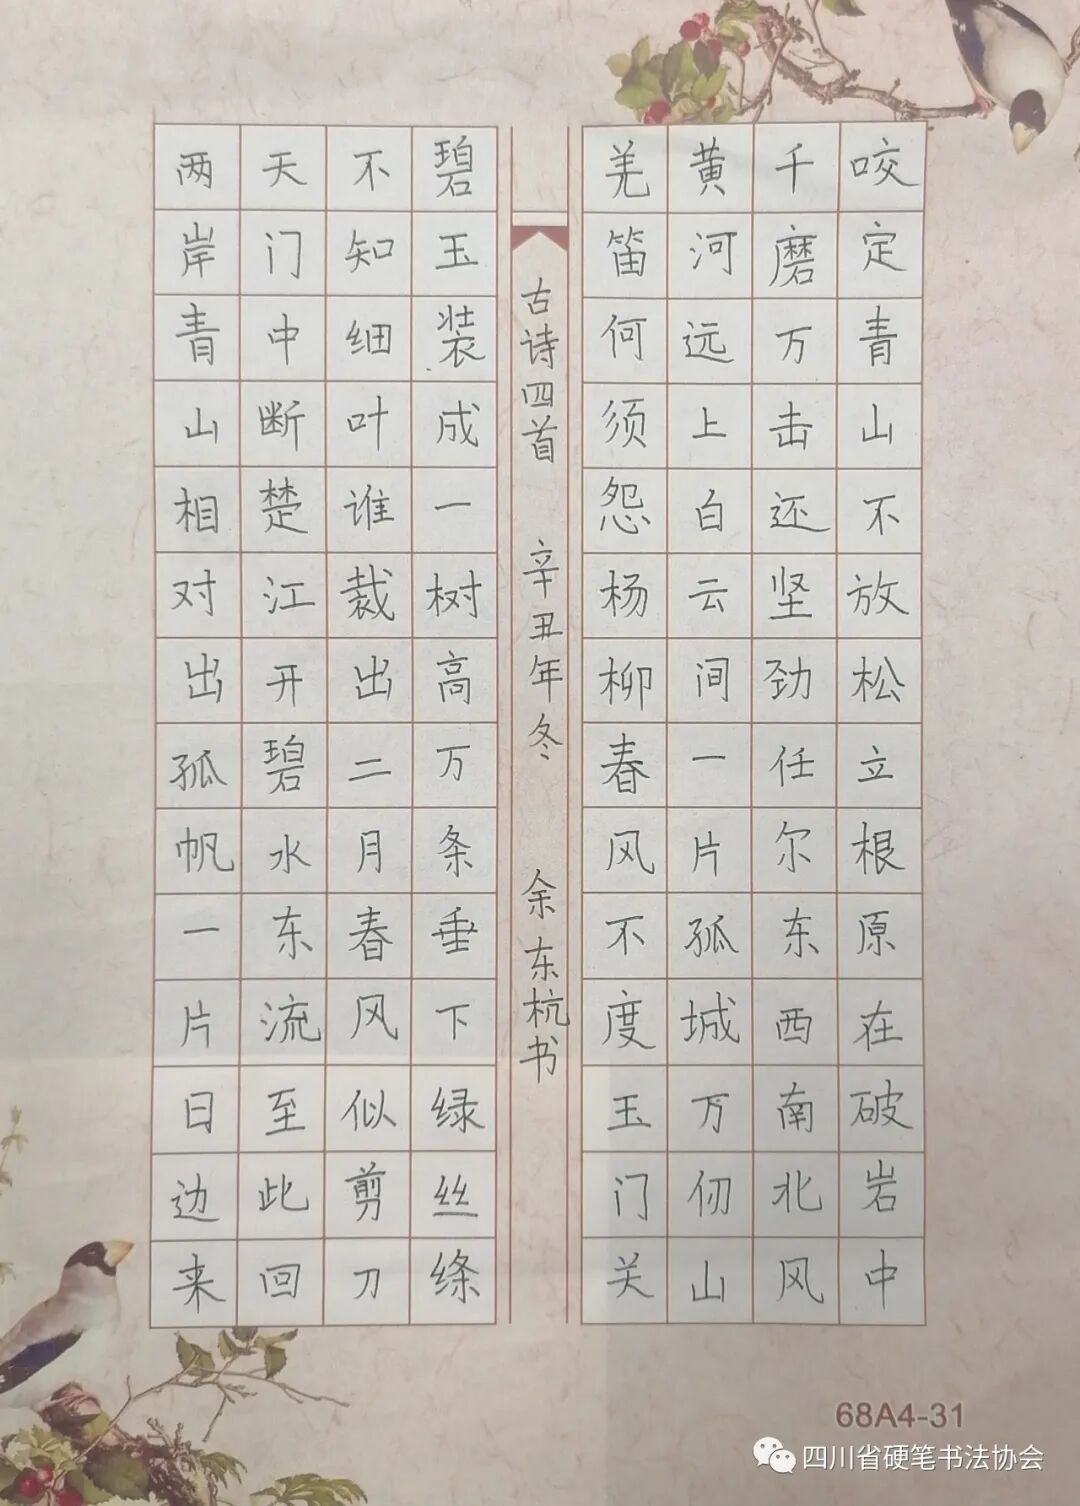 咬定青山不放松立根原在破岩中
千磨万击还坚劲任尔东西南北风
黄河远上白云间一片孤城万仞山
羌笛何须怨杨柳春风不度玉门关
古诗四首 辛丑年冬 余东杭书
碧玉装成一树高万条垂下绿丝绦
不知细叶谁裁出二月春风似剪刀
天门中断楚江开碧水东流至此回
两岸青山相对出孤帆一片日边来
68A4-31
四川省硬笔书法协会